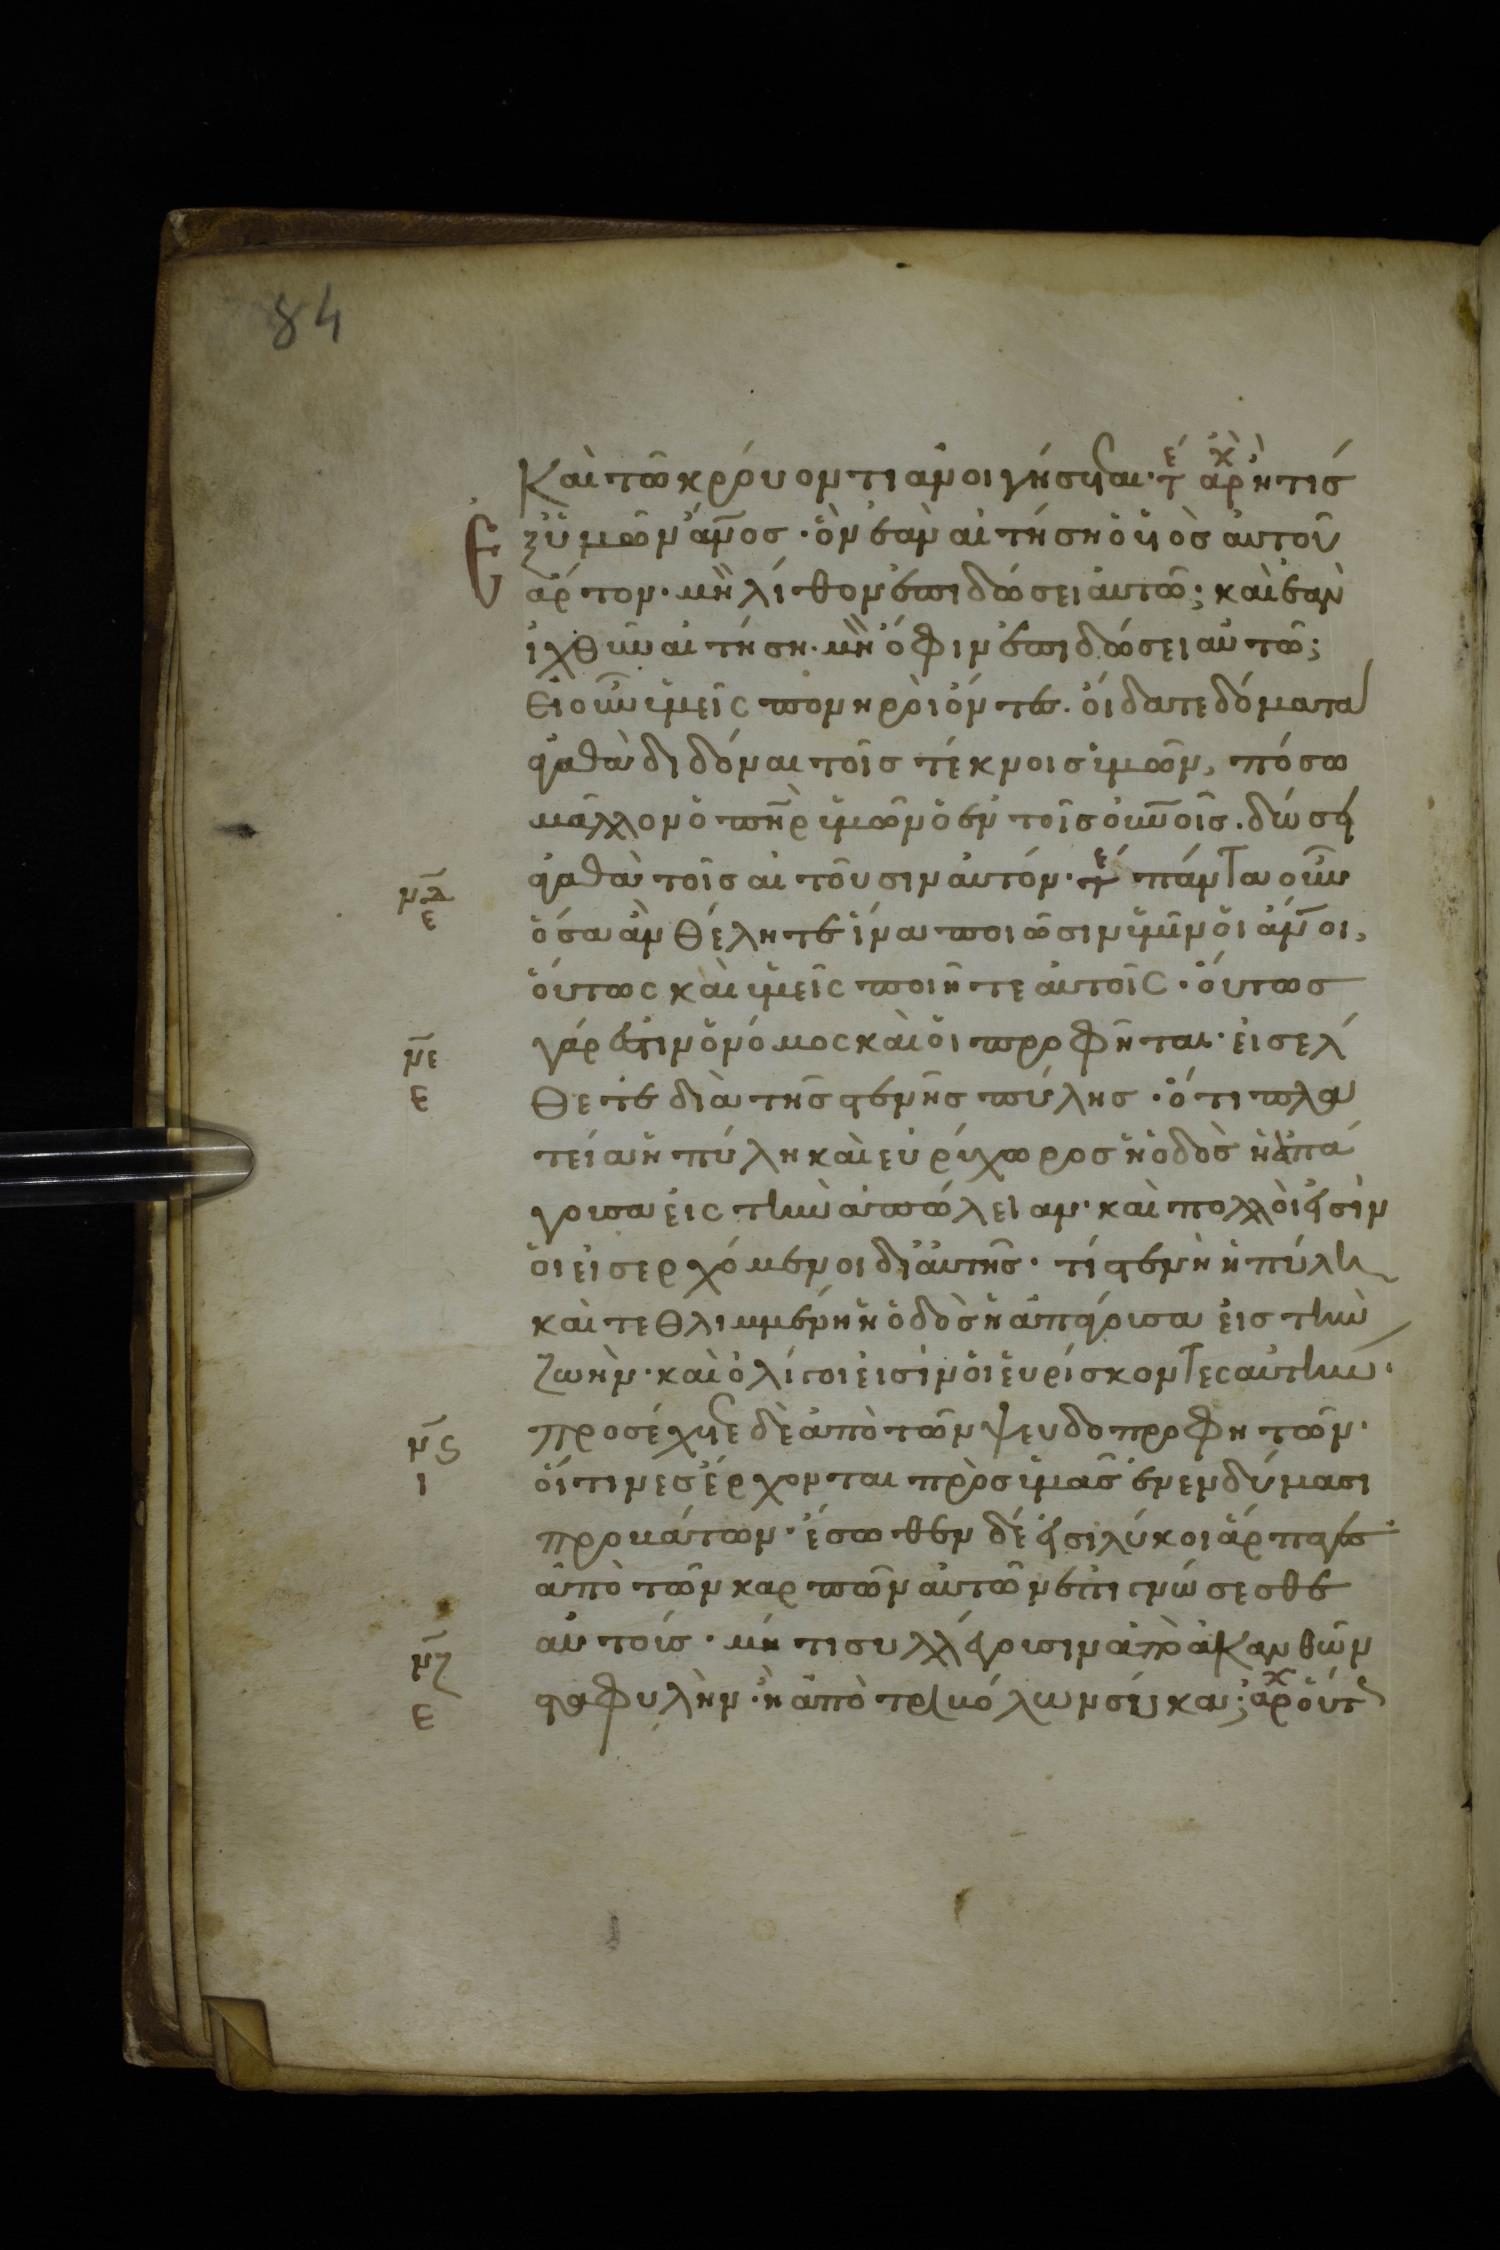 84
Καὶ τῶ κρούοντι ἀνοιγήσεται· τ̇ε ἀρχ ἢ τίς
Ἐ ξ ὑμῶν ἄνος· ὃν ἐὰν αἰτήση ὁ υἱὸς αὐτοῦ
ἄρτον· μὴ λίθον ἐπιδώσει αὐτῶ; καὶ ἐὰν
ἰχθὺν αἰτήση· μὴ ὄφιν ἐπιδώσει αὐτῶ;
Εἰ οὖν ὑμεῖς πονηροὶ ὄντες· οἴδατε δόματα
ἀγαθὰ διδόναι τοῖς τέκνοις ὑμῶν, πόσω
μᾶλλον ὁ πηρ ὑμῶν ὁ ἐν τοῖς οὐνοῖς· δώσει
ἀγαθὰ τοῖς αἰτοῦσιν αὐτόν· τε πάντα οὖν
μδ
ε
ὅσα ἂν θέλητε ἵνα ποιῶσιν ὑμῖν οἱ ἄνοι,
οὕτως καὶ ὑμεῖς ποιῆτε αὐτοῖς· οὕτως
γάρ ἐστιν ὁ νόμος καὶ οἱ προφῆται· εἰσέλ
με
ε
θετε διὰ τῆς στενῆς πύλης· ὅτι πλα
τεῖα ἡ πύλη καὶ εὐρύχωρος ἡ ὁδὸς ἡ ἀπά
γουσα εἰς τὴν ἀπώλειαν· καὶ πολλοί εἰσιν
οἱ εἰσερχόμενοι δι' αὐτῆς· τί στενὴ ἡ πύλη
καὶ τεθλιμμένη ἡ ὁδὸς ἡ ἀπάγουσα εἰς τὴν
ζωήν· καὶ ὀλίγοι εἰσὶν οἱ εὑρίσκοντες αὐτήν·
μς
ι
προσέχετε δὲ ἀπὸ τῶν ψευδοπροφητῶν·
οἵτινες ἔρχονται πρὸς ὑμᾶς ἐν ἐνδύμασι
προβάτων· ἔσωθεν δέ εἰσι λύκοι ἅρπαγες·
ἀπὸ τῶν καρπῶν αὐτῶν ἐπιγνώσεσθε
αὐτούς· μήτι συλλέγουσιν ἀπὸ ἀκανθῶν
μζ
ε
σταφυλὴν· ἢ ἀπὸ τριβόλων σῦκα; ἀρχ οὕτ